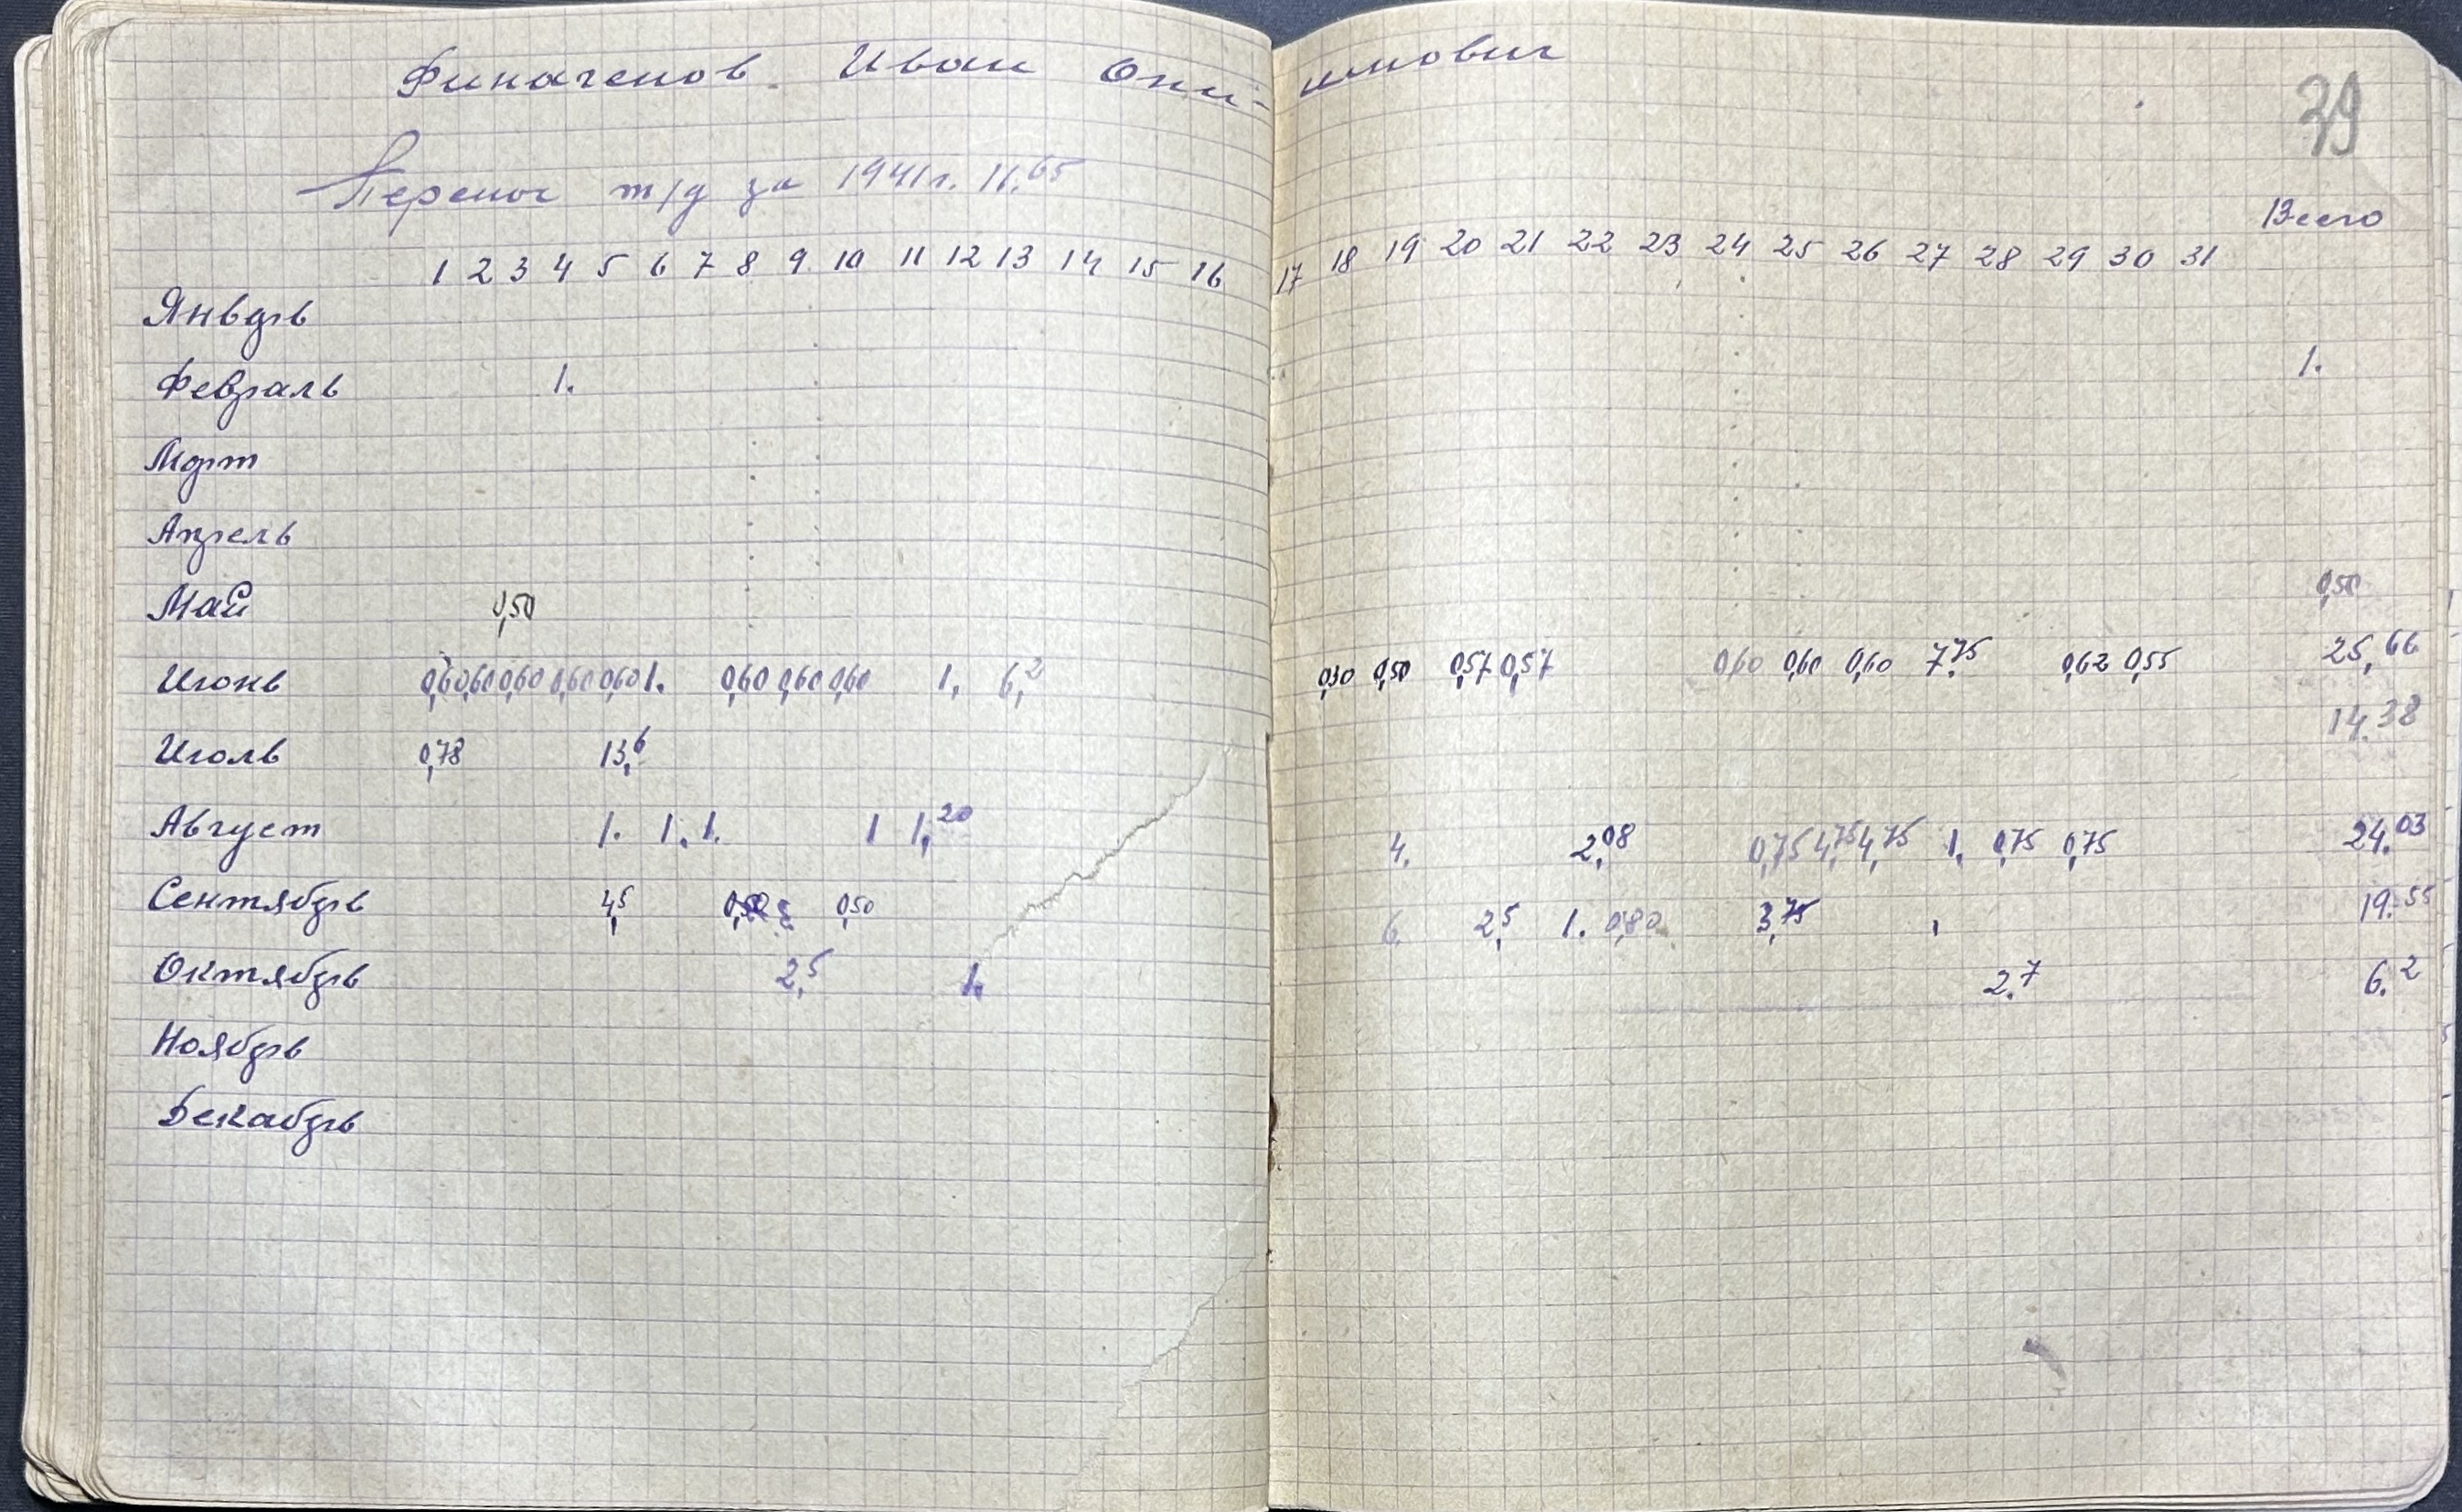 Финагенов Иван Они-имович
39
Перенос т/д за 1941г. 11,65
1 2 3 4 5 6 7 8 9 10 11 12 13 14 15 16 17 18 19 20 21 22 23 24 25 26 27 28 29 30 31 Всего
Январь
Февраль 1. 1.
Март
Апрель
Май 0,50 0,50
Июнь 0,60 0,60 0,60 0,60 0,60 1. 0,60 0,60 0,60 1, 6,2 0,30 0,50 0,57 0,57 0,60 0,60 0,60 7,75 0,62 0,55 25,66
Июль 0,78 13,6 14.38
Август 1. 1. 1. 1 1,20 4. 2,08 0,75 4,75 4,75 1. 0,75 0,75 24.03
Сентябрь 4,5 0,50 6. 2,5 1. 0,80 3,75 19.55
Октябрь 2,5 1. 2.7 6.2
Ноябрь
Декабрь